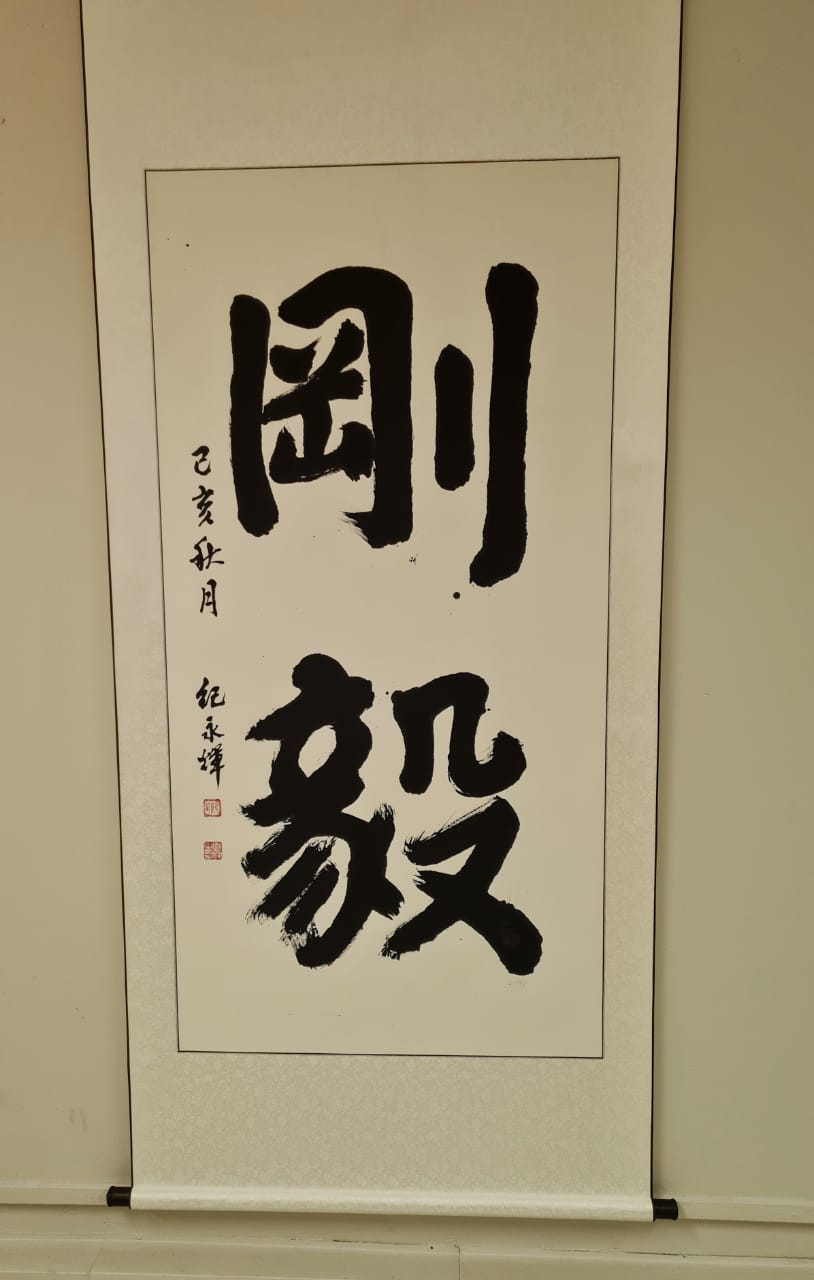 剛毅
己亥秋月 紀永輝